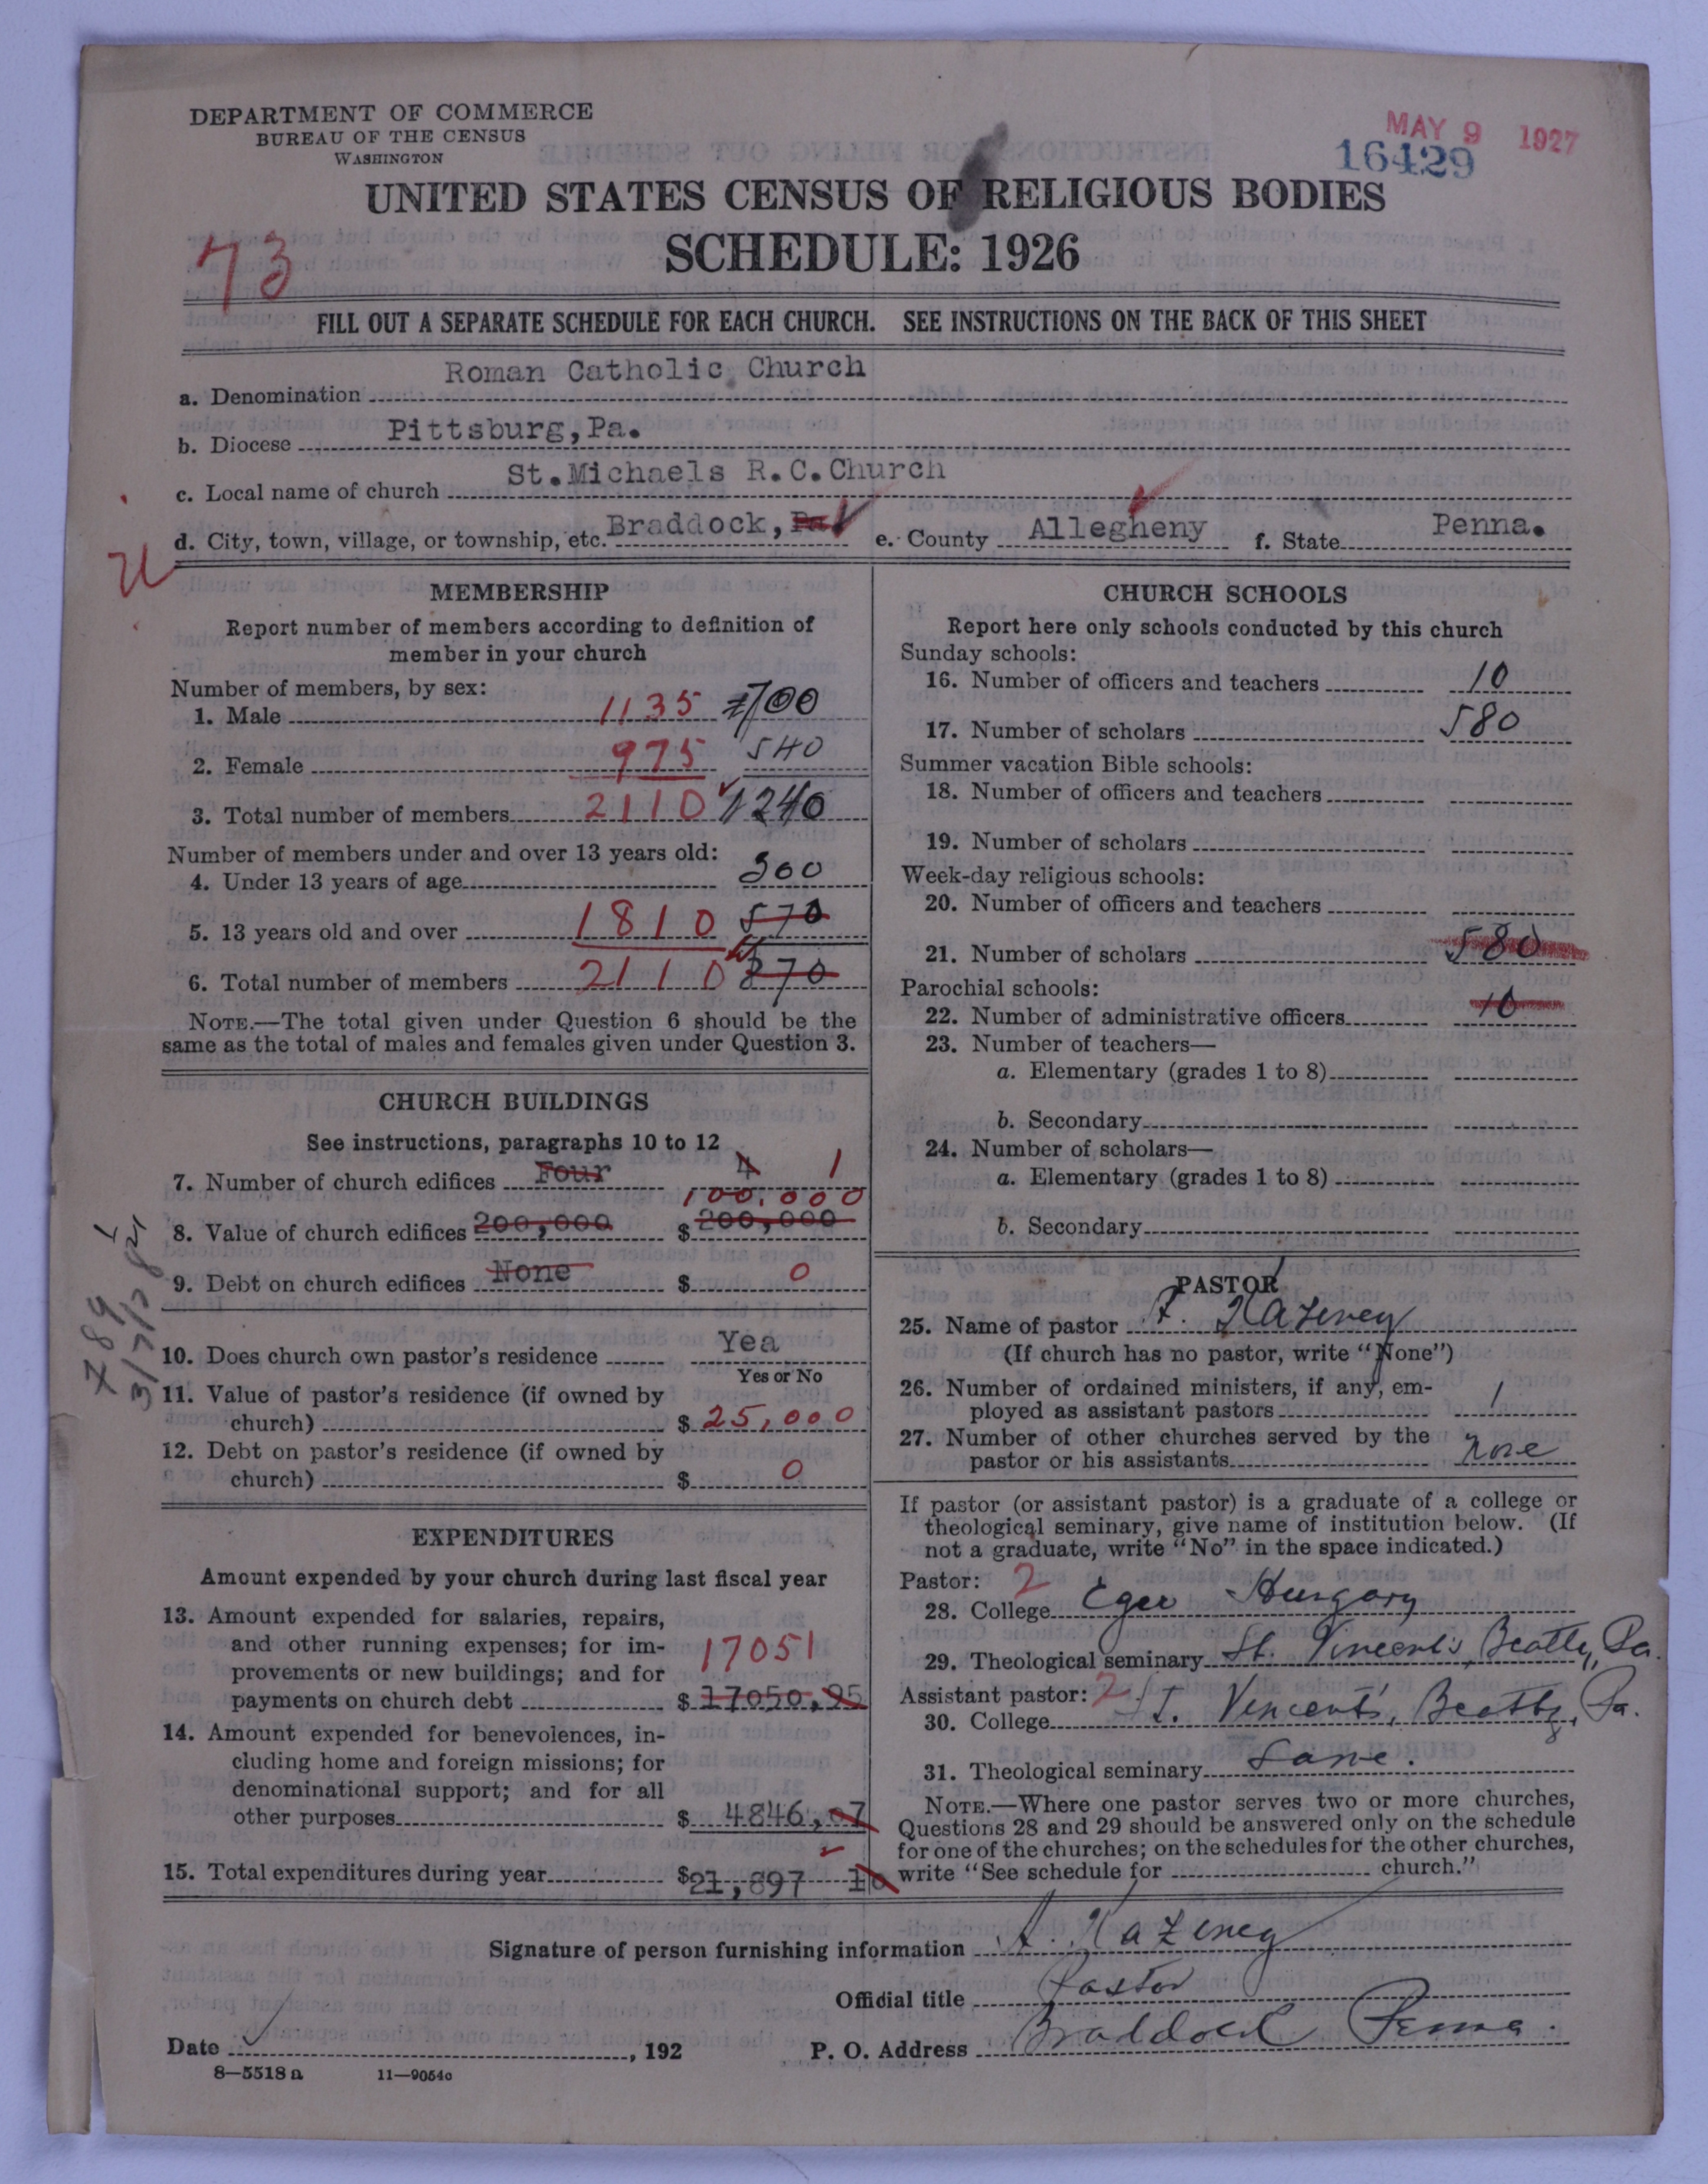 DEPARTMENT OF COMMERCE
BUREAU OF THE CENSUS
WASHINGTON
MAY 9 1927
16429
UNITED STATES CENSUS OF RELIGIOUS BODIES
SCHEDULE: 1926
73
FILL OUT A SEPARATE SCHEDULE FOR EACH CHURCH. SEE INSTRUCTIONS ON THE BACK OF THIS SHEET
a. Denomination Roman Catholic Church
b. Diocese Pittsburg,Pa.
c. Local name of church St.Michaels R.C.Church
d. City, town, village, or township, etc. Braddock, Pa e. County Allegheny f. State Penna.
MEMBERSHIP
Report number of members according to definition of
member in your church
Number of members, by sex:
1. Male 1135 700
2. Female 975 540
3. Total number of members 2110 1240
Number of members under and over 13 years old:
4. Under 13 years of age 300
5. 13 years old and over 1810 570
6. Total number of members 2110 870
NOTE.—The total given under Question 6 should be the
same as the total of males and females given under Question 3.
CHURCH BUILDINGS
See instructions, paragraphs 10 to 12
7. Number of church edifices Four 4 1
100,000
8. Value of church edifices 200,000 $ 200,000
9. Debt on church edifices None $ 0
10. Does church own pastor's residence Yea
Yes or No
11. Value of pastor's residence (if owned by
church) $ 25,000
12. Debt on pastor's residence (if owned by
church) $ 0
EXPENDITURES
Amount expended by your church during last fiscal year
13. Amount expended for salaries, repairs,
and other running expenses; for im-
provements or new buildings; and for 17051
payments on church debt $ 17050,95
14. Amount expended for benevolences, in-
cluding home and foreign missions; for
denominational support; and for all
other purposes $ 4846,07
15. Total expenditures during year $21,897 10
CHURCH SCHOOLS
Report here only schools conducted by this church
Sunday schools:
16. Number of officers and teachers 10
17. Number of scholars 580
Summer vacation Bible schools:
18. Number of officers and teachers
19. Number of scholars
Week-day religious schools:
20. Number of officers and teachers
21. Number of scholars 580
Parochial schools:
22. Number of administrative officers 10
23. Number of teachers—
a. Elementary (grades 1 to 8)
b. Secondary
24. Number of scholars—
a. Elementary (grades 1 to 8)
b. Secondary
PASTOR
25. Name of pastor A. Kazincy
(If church has no pastor, write "None")
26. Number of ordained ministers, if any, em-
ployed as assistant pastors 1
27. Number of other churches served by the
pastor or his assistants None
If pastor (or assistant pastor) is a graduate of a college or
theological seminary, give name of institution below. (If
not a graduate, write "No" in the space indicated.)
Pastor: 2
28. College Eger Hungary
29. Theological seminary St. Vincent's, Beatty, Pa.
Assistant pastor: 2
30. College St. Vincent's, Beatty, Pa.
31. Theological seminary Same.
NOTE.—Where one pastor serves two or more churches,
Questions 28 and 29 should be answered only on the schedule
for one of the churches; on the schedules for the other churches,
write "See schedule for church."
Signature of person furnishing information A. Kazincy
Official title Pastor
Date , 192 P. O. Address Braddock Penna.
8—5518 a 11—9054c